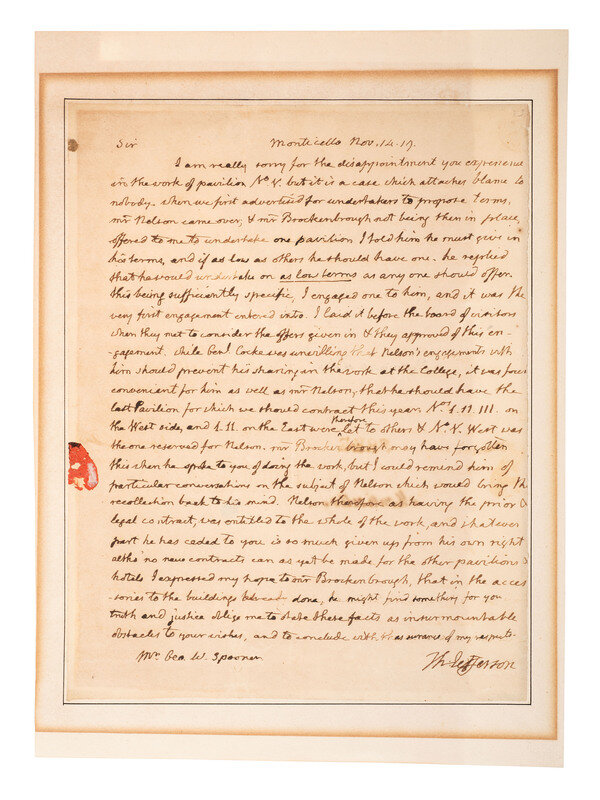 Sir Monticello Nov. 14. 19.
I am really sorry for the disappointment you experience
in the work of pavilion No. V. but it is a case which attaches blame to
nobody. when we first advertised for undertakers to propose terms,
mr Nelson came over, & mr Brockenbrough not being then in place,
offered to me to undertake one pavilion. I told him he must give in
his terms, and if as low as others he should have one. he replied
that he would undertake on as low terms as any one should offer.
this being sufficiently specific, I engaged one to him, and it was the
very first engagement entered into. I laid it before the board of visitors
when they met to consider the offers given in & they approved of this en-
-gagement. while Genl. Cocke was unwilling that Nelson's engagements with
him should prevent his sharing in the work at the College, it was found
convenient for him as well as mr Nelson, that he should have the
last Pavilion for which we should contract this year. Nos. I. II. III. on
the West side, and I. II. on the East were therefore let to others & No. V. West was
the one reserved for Nelson. mr Brockenbrough may have forgotten
this when he spoke to you of doing the work, but I could remind him of
particular conversations on the subject of Nelson which would bring the
recollection back to his mind. Nelson therefore as having the prior &
legal contract, was entitled to the whole of the work, and whatever
part he has ceded to you is so much given up from his own right
altho' no new contracts can as yet be made for the other pavilions &
hotels I expressed my hope to mr Brockenbrough, that in the acces
-sories to the buildings already done, he might find something for you
truth and justice oblige me to state these facts as insurmountable
obstacles to your wishes, and to conclude with the assurance of my respects.
Mr. Geo. W. Spooner. Th: Jefferson